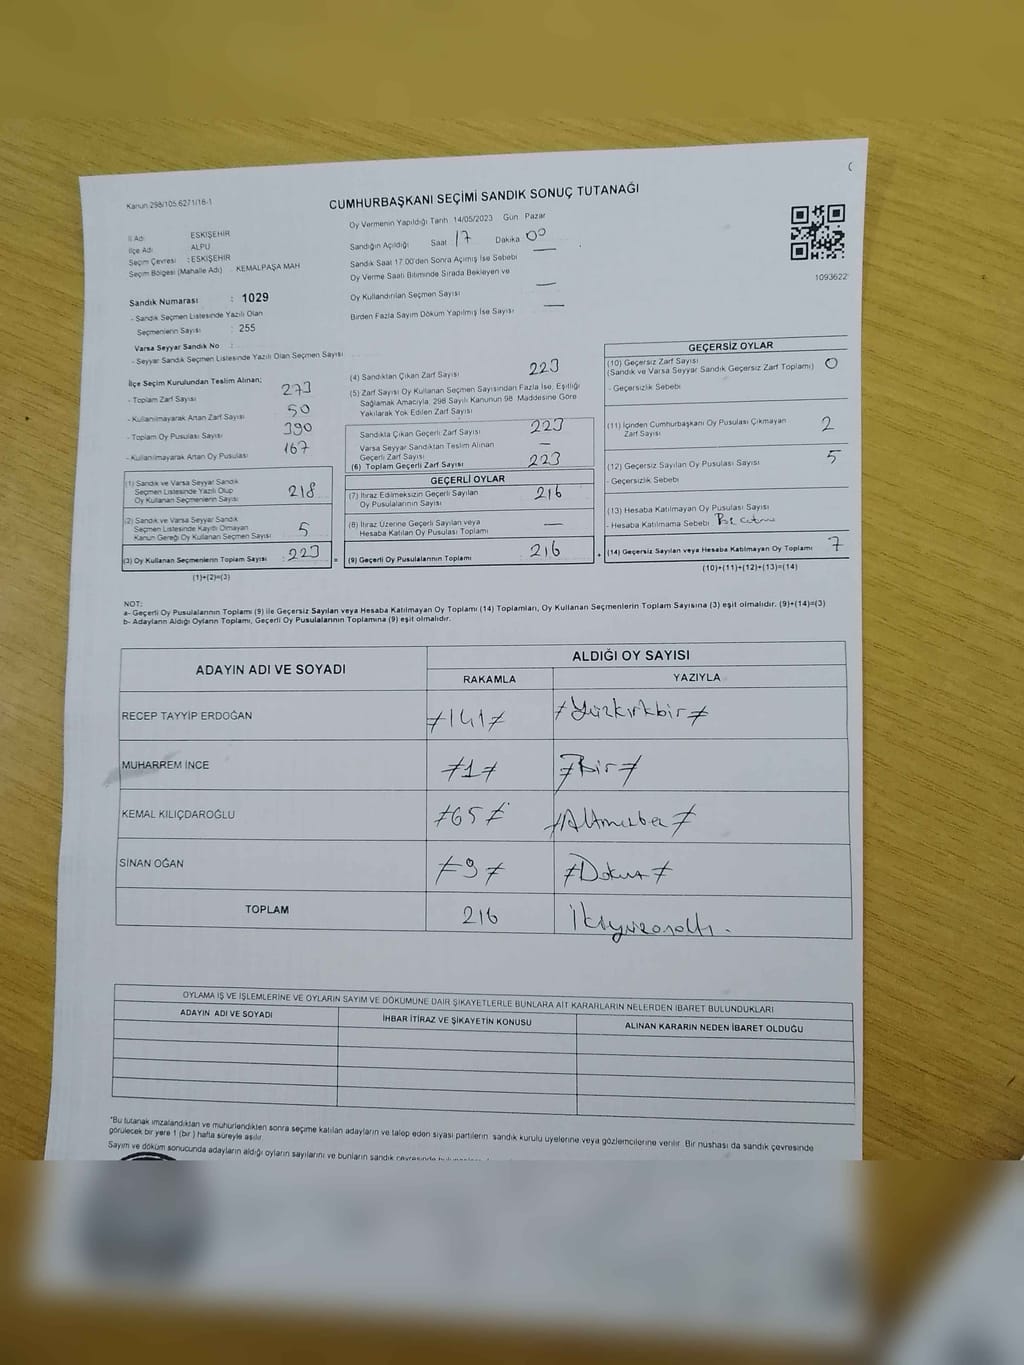 Kanun 298/105.6271/16-1
CUMHURBAŞKANI SEÇİMİ SANDIK SONUÇ TUTANAĞI
İl Adı : ESKİŞEHİR
İlçe Adı : ALPU
Seçim Çevresi : ESKİŞEHİR
Seçim Bölgesi (Mahalle Adı) : KEMALPAŞA MAH
Sandık Numarası : 1029
- Sandık Seçmen Listesinde Yazılı Olan
Seçmenlerin Sayısı : 255
Varsa Seyyar Sandık No :
- Seyyar Sandık Seçmen Listesinde Yazılı Olan Seçmen Sayısı
Oy Vermenin Yapıldığı Tarih 14/05/2023 Gün Pazar
Sandığın Açıldığı Saat 17 Dakika 00
Sandık Saat 17.00'den Sonra Açılmış İse Sebebi —
Oy Verme Saati Bitiminde Sırada Bekleyen ve
Oy Kullandırılan Seçmen Sayısı —
Birden Fazla Sayım Döküm Yapılmış İse Sayısı —
1093622
İlçe Seçim Kurulundan Teslim Alınan;
- Toplam Zarf Sayısı 273
- Kullanılmayarak Artan Zarf Sayısı 50
- Toplam Oy Pusulası Sayısı 390
- Kullanılmayarak Artan Oy Pusulası 167
(1) Sandık ve Varsa Seyyar Sandık
Seçmen Listesinde Yazılı Olup
Oy Kullanan Seçmenlerin Sayısı 218
(2) Sandık ve Varsa Seyyar Sandık
Seçmen Listesinde Kayıtlı Olmayan
Kanun Gereği Oy Kullanan Seçmen Sayısı 5
(3) Oy Kullanan Seçmenlerin Toplam Sayısı 223 =
(1)+(2)=(3)
(4) Sandıktan Çıkan Zarf Sayısı 223
(5) Zarf Sayısı Oy Kullanan Seçmen Sayısından Fazla İse, Eşitliği
Sağlamak Amacıyla, 298 Sayılı Kanunun 98. Maddesine Göre
Yakılarak Yok Edilen Zarf Sayısı
Sandıkta Çıkan Geçerli Zarf Sayısı 223
Varsa Seyyar Sandıktan Teslim Alınan
Geçerli Zarf Sayısı —
(6) Toplam Geçerli Zarf Sayısı 223
GEÇERLİ OYLAR
(7) İtiraz Edilmeksizin Geçerli Sayılan
Oy Pusulalarının Sayısı 216
(8) İtiraz Üzerine Geçerli Sayılan veya
Hesaba Katılan Oy Pusulası Toplamı —
(9) Geçerli Oy Pusulalarının Toplamı 216 +
GEÇERSİZ OYLAR
(10) Geçersiz Zarf Sayısı
(Sandık ve Varsa Seyyar Sandık Geçersiz Zarf Toplamı) 0
- Geçersizlik Sebebi
(11) İçinden Cumhurbaşkanı Oy Pusulası Çıkmayan
Zarf Sayısı 2
(12) Geçersiz Sayılan Oy Pusulası Sayısı 5
- Geçersizlik Sebebi
(13) Hesaba Katılmayan Oy Pusulası Sayısı
- Hesaba Katılmama Sebebi
(14) Geçersiz Sayılan veya Hesaba Katılmayan Oy Toplamı 7
(10)+(11)+(12)+(13)=(14)
NOT:
a- Geçerli Oy Pusulalarının Toplamı (9) ile Geçersiz Sayılan veya Hesaba Katılmayan Oy Toplamı (14) Toplamları, Oy Kullanan Seçmenlerin Toplam Sayısına (3) eşit olmalıdır. (9)+(14)=(3)
b- Adayların Aldığı Oyların Toplamı, Geçerli Oy Pusulalarının Toplamına (9) eşit olmalıdır.
ADAYIN ADI VE SOYADI ALDIĞI OY SAYISI
RAKAMLA YAZIYLA
RECEP TAYYİP ERDOĞAN ≠141≠ ≠Yüzkırkbir≠
MUHARREM İNCE ≠1≠ ≠Bir≠
KEMAL KILIÇDAROĞLU ≠65≠ ≠Altmışbeş≠
SİNAN OĞAN ≠9≠ ≠Dokuz≠
TOPLAM 216 İkiyüzonaltı.
OYLAMA İŞ VE İŞLEMLERİNE VE OYLARIN SAYIM VE DÖKÜMÜNE DAİR ŞİKAYETLERLE BUNLARA AİT KARARLARIN NELERDEN İBARET BULUNDUKLARI
ADAYIN ADI VE SOYADI İHBAR İTİRAZ VE ŞİKAYETİN KONUSU ALINAN KARARIN NEDEN İBARET OLDUĞU
*Bu tutanak imzalandıktan ve mühürlendikten sonra seçime katılan adayların ve talep eden siyasi partilerin sandık kurulu üyelerine veya gözlemcilerine verilir. Bir nüshası da sandık çevresinde
görülecek bir yere 1 (bir) hafta süreyle asılır.
Sayım ve döküm sonucunda adayların aldığı oyların sayılarını ve bunların sandık çevresinde